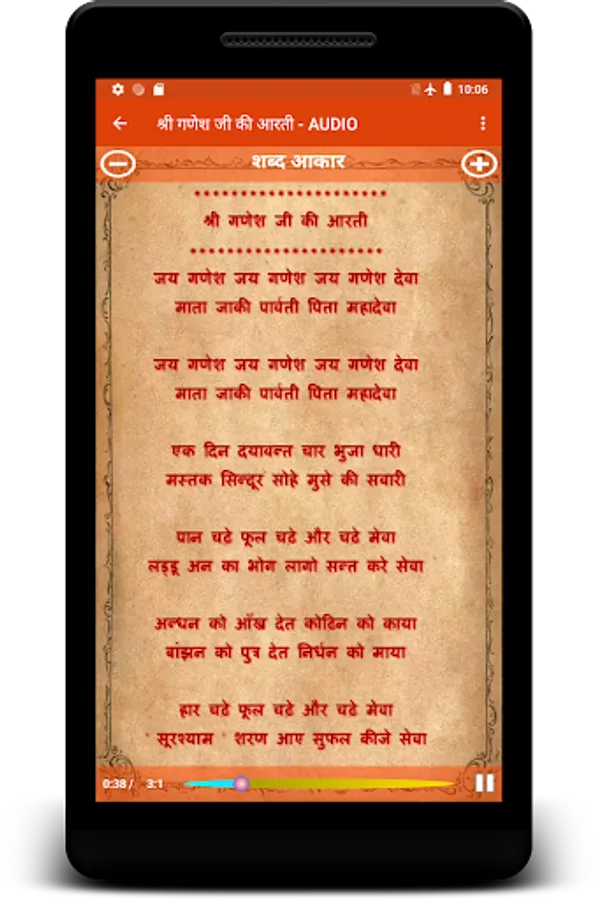 10:06
श्री गणेश जी की आरती - AUDIO
शब्द आकार
********************
श्री गणेश जी की आरती
********************
जय गणेश जय गणेश जय गणेश देवा
माता जाकी पार्वती पिता महादेवा
जय गणेश जय गणेश जय गणेश देवा
माता जाकी पार्वती पिता महादेवा
एक दिन दयावन्त चार भुजा धारी
मस्तक सिन्दूर सोहे मुसे की सवारी
पान चढे फूल चढे और चढे मेवा
लड्डू अन का भोग लागो सन्त करे सेवा
अन्धन को आँख देत कोटिन को काया
बांझन को पुत्र देत निर्धन को माया
हार चढे फूल चढे और चढे मेवा
' सूरश्याम ' शरण आए सुफल कीजे सेवा
0:38 / 3:1